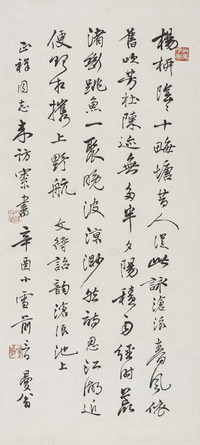 楊柳陰陰十畮塘昔人從此詠滄浪春風依
舊吹芳杜陳迹無多半夕陽積雨經時荒
渚斷跳魚一聚晚波涼渺然詩思江湖近
便欲相攜上野航 文待詔韻滄浪池上
正祥同志來訪索書辛酉小雪前曼翁